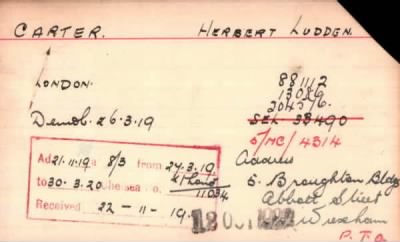 CARTER. HERBERT LUDDEN.
LONDON.
88112
13069
204576.
SEL 38490
5/MC/4314
Demob. 26.3.19
Ad 21.11.19 a 8/3 from 24.3.19
to 30.3.20 11034
Received 22-11-19
Address
5. Broughton Bldgs
Abbott Street
Wrexham
12 OCT
P.T.O.